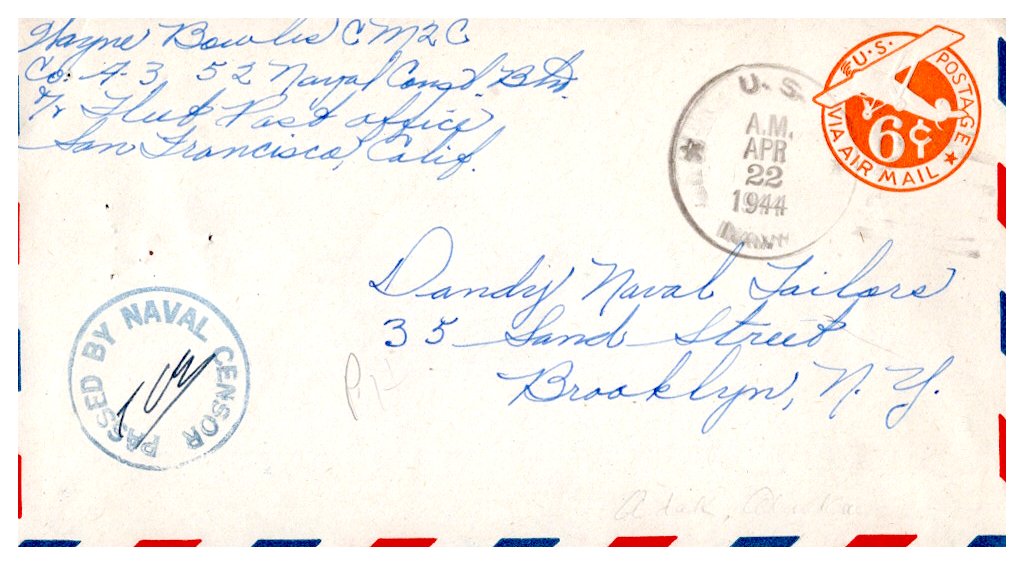 Wayne Bowles CM2C
Co. A-3, 52 Naval Const. Btn.
c/o Fleet Post office
San Francisco, Calif.
U.S. POSTAGE
6¢
VIA AIR MAIL
U.S.
A.M.
APR
22
1944
NAVY
Dandy Naval Tailors
35 Sand Street
Brooklyn, N. Y.
PASSED BY NAVAL CENSOR
Adak, Alaska